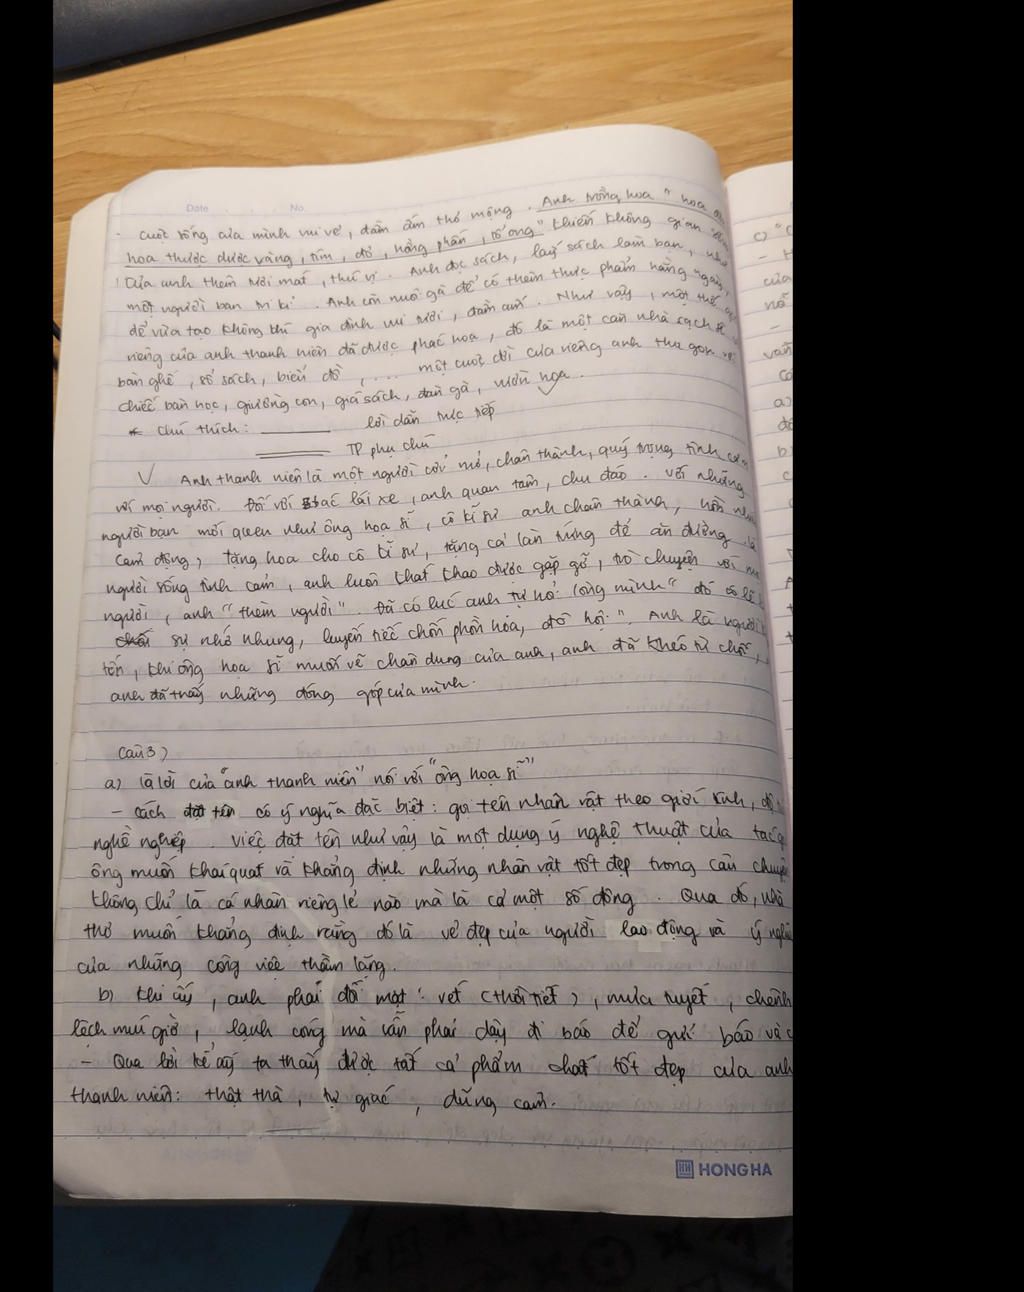 Date No.
- cuộc sống của mình vui vẻ, đầm ấm thơ mộng. Anh trồng hoa "hoa
hoa thược dược vàng, tím, đỏ, hồng phấn, tổ ong" khiến không gian
của anh thêm tươi mát, thú vị. Anh đọc sách, lấy sách làm bạn, như
một người bạn tri kỉ. Anh còn nuôi gà để có thêm thực phẩm hằng ngày,
để vừa tạo không khí gia đình vui tươi, đầm ấm. Như vậy, một thế
riêng của anh thanh niên đã được phác họa, đó là một căn nhà sạch sẽ
bàn ghế, sổ sách, biểu đồ, .... một cuộc đời của riêng anh thu gọn
chiếc bàn học, giường con, giá sách, đàn gà, vườn hoa.
* Chú thích: lời dẫn trực tiếp
TP phụ chú
Anh thanh niên là một người cởi mở, chân thành, quý trọng tình cảm
với mọi người. Đối với bác lái xe, anh quan tâm, chu đáo. với những
người bạn mới quen như ông họa sĩ, cô kĩ sư anh chân thành,
cảm động, tặng hoa cho cô kĩ sư, tặng cả làn trứng để ăn đường. là
người sống tình cảm, anh luôn khát khao được gặp gỡ, trò chuyện với
người, anh "thèm người". Đã có lúc anh tự hỏi lòng mình "đó có lẽ
sự nhớ nhung, luyến tiếc chốn phồn hóa, đô hội". Anh là người
tốn, khi ông họa sĩ muốn vẽ chân dung của anh, anh đã khéo từ chối,
anh đã thấy những đóng góp của mình.
Câu 3)
a) là lời của "anh thanh niên" nói với "ông họa sĩ"
- Cách đặt tên có ý nghĩa đặc biệt: gọi tên nhân vật theo giới tính, độ
nghề nghiệp. việc đặt tên như vậy là một dụng ý nghệ thuật của tác
ông muốn khái quát và khẳng định những nhân vật tốt đẹp trong câu chuyện
không chỉ là cá nhân riêng lẻ nào mà là cả một số đông. Qua đó, nhà
thơ muốn khẳng định rằng đó là vẻ đẹp của người lao động và ý nghĩa
của những công việc thầm lặng.
b) khi ấy, anh phải đối mặt: vết (thời tiết), mưa tuyết, chênh
lệch múi giờ, lạnh cóng mà vẫn phải dậy đi báo để gửi báo về
- Qua lời kể ấy ta thấy được tất cả phẩm chất tốt đẹp của anh
thanh niên: thật thà, tự giác, dũng cảm.
HONG HA
c) "
- H
của
nó
-
a)
b)
c